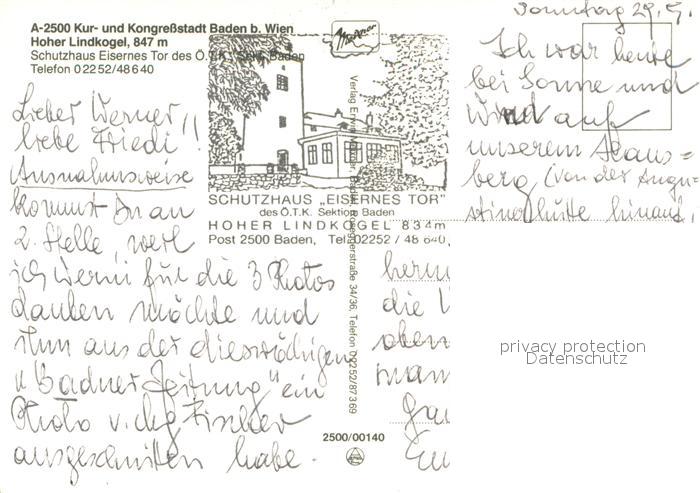 A-2500 Kur- und Kongreßstadt Baden b. Wien
Hoher Lindkogel, 847 m
Schutzhaus Eisernes Tor des Ö.T.K. Sekt. Baden
Telefon 02252/48640
Lieber Werner,
liebe Friedl!!
Ausnahmsweise
kommst Du an
2. Stelle, weil
ich Werni für die 3 Photos
danken möchte und
ihm aus der dieswöchigen
"Badner Zeitung" ein
Photo v. Fischer
ausgeschnitten habe.
SCHUTZHAUS „EISERNES TOR"
des Ö.T.K. Sektion Baden
HOHER LINDKOGEL 834m
Post 2500 Baden, Tel. 02252 / 48 640,
Verlag Erwin
34/36, Telefon 02252/87369
2500/00140
Sonntag 29.9.
Ich war heute
bei Sonne und
Wind auf
unserem
berg, (von der Augu=
stinerhütte hinauf,
die
oben
privacy protection
Datenschutz